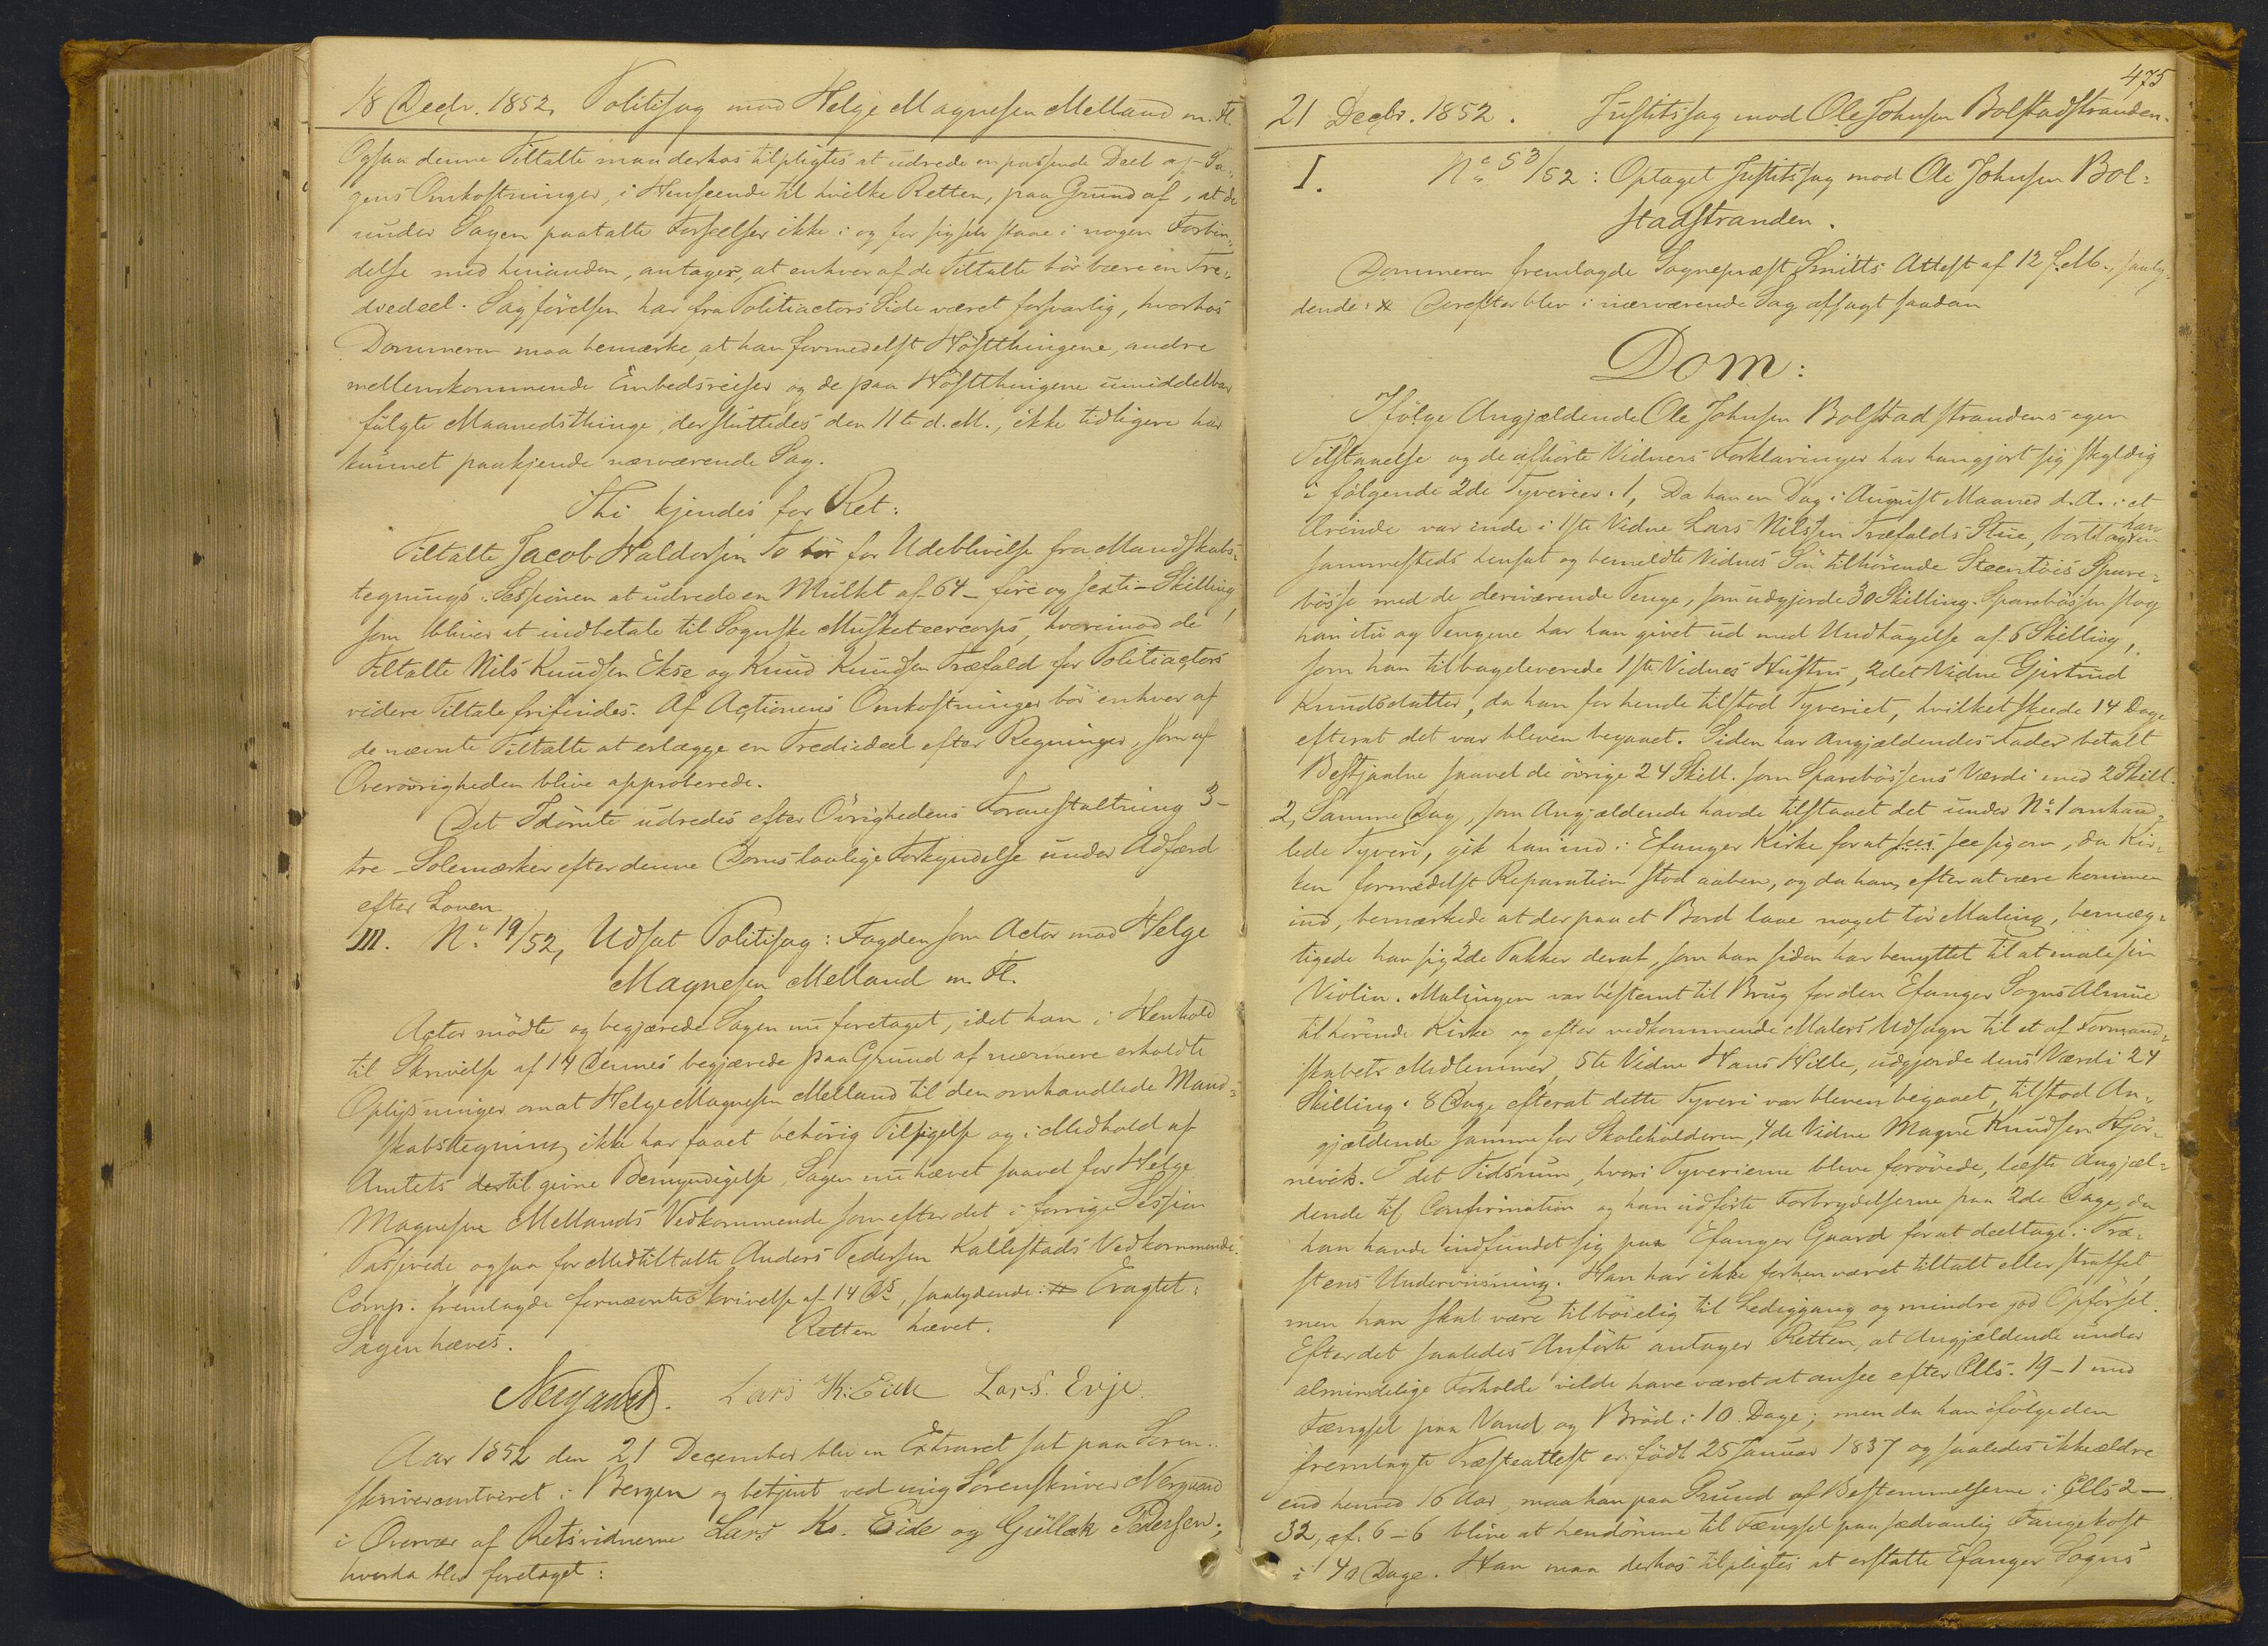 18 Decbr. 1852, Politisag mod Helge Magnesen Melland m. Fl.
Ogsaa denne Tiltalte maa derhos tilpligtes at udrede en passende Deel af Sa-
gens Omkostninger, i Henseende til hvilke Retten, paa Grund af, at de
under Sagen paatalte Forseelser ikke i og for sig selv staae i nogen Forbin-
delse med hinanden, antager, at enhver af de Tiltalte bör bære en Tre-
diedeel. Sagförelsen har fra Politiactors Side været forsvarlig, hvorhos
Dommeren maa bemærke, at han formedelst Höstthingene, andre
mellemkommende Embedsreiser og de paa Höstthingene umiddelbar
fulgte Maanedsthinge, der sluttedes den 11te d. M., ikke tidligere har
kunnet paakjende nærværende Sag.
Thi kjendes for Ret:
Tiltalte Jacob Haldorsen Tö bör for Udeblivelse fra Mandskabs-
tegnings-Sessionen at udrede en Mulkt af 64 – fire og sexti – Skilling,
som bliver at indbetale til Sognske Musketeercorps, hvorimod de
Tiltalte Nils Knudsen Ekse og Knud Knudsen Træfald for Politiactors
videre Tiltale frifindes. Af Actionens Omkostninger bör enhver af
de nævnte Tiltalte at erlægge en Trediedeel efter Regninger, som af
Overövrigheden blive approberede.
Det Idömte udredes efter Övrighedens Foranstaltning 3 –
tre – Solemærker efter denne Doms lovlige Forkyndelse under Adfærd
efter Loven.
III. No. 19/52, Udsat Politisag: Fogden som Actor mod Helge
Magnesen Melland m. Fl.
Actor mödte og begjærede Sagen nu foretaget, idet han i Henhold
til Skrivelse af 14 Dennes begjærede paa Grund af nærmere erholdte
Oplysninger om at Helge Magnesen Melland til den omhandlede Mand-
skabstegning ikke har faaet behörig Tilsigelse og i Medhold af
Amtets dertil givne Bemyndigelse, Sagen nu hævet saavel for Helge
Magnesen Mellands Vedkommende som efter det i forrige Session
Passerede ogsaa for Medtiltalte Anders Pedersen Kallestads Vedkommende.
Comp. fremlagde fornævnte Skrivelse af 14 Ds, saalydende: # Eragtet:
Sagen hæves. Retten hævet.
Nergaard. Lars K. Eide Lars. Evje.
Aar 1852 den 21 December blev en Extraret sat paa Soren-
skrivercontoiret i Bergen og betjent ved mig Sorenskriver Nergaard
i Overvær af Retsvidnerne Lars Ks. Eide og Gullak Pedersen;
hvorda blev foretaget:
475
21 Decbr. 1852. Justitssag mod Ole Johnsen Bolstadstranden.
I. No. 53/52: Optaget Justitssag mod Ole Johnsen Bol-
stadstranden.
Dommeren fremlagde Sogneprest Smitts Attest af 12 f. M., saaly-
dende: # Derefter blev i nærværende Sag afsagt saadan
Dom:
Ifölge Angjældende Ole Johnsen Bolstadstrandens egen
Tilstaaelse og de afhörte Vidners Forklaringer har han gjort sig skyldig
i fölgende 2de Tyverier: 1, Da han en Dag i August Maaned d. A. i et
Ærinde var inde i 1ste Vidne Lars Nilssen Træfalds Stue, borttog han en
sammesteds hensat og bemeldte Vidnes Sön tilhörende Steentöis Spare-
bösse med de deriværende Penge, som udgjorde 30 Skilling. Sparebössen slog
han itu og Pengene har han givet ud med Undtagelse af 6 Skilling,
som han tilbageleverede 1ste Vidnes Hustru, 2det Vidne Gjertrud
Knudsdatter, da han for hende tilstod Tyveriet, hvilket skeede 14 Dage
efterat det var bleven begaaet. Siden har Angjældendes Fader betalt
Bestjaalne saavel de övrige 24 Skill. som Sparebössens Værdi med 2 Skill.
2, Samme Dag, som Angjældende havde tilstaaet det under No. 1 omhand-
lede Tyveri, gik han ind i Efanger Kirke for at sees see sig om, da Kir-
ken formedelst Reparation stod aaben, og da han, efter at være kommen
ind, bemærkede at der paa et Bord laae noget tör Maling, bemæg-
tigede han sig 2de Pakker deraf, som han siden har benyttet til at male sin
Violin. Malingen var bestemt til Brug for den Efanger Sogns Almue
tilhörende Kirke og efter vedkommende Malers Udsagn til et af Formand-
skabets Medlemmer, 5te Vidne Hans Hille, udgjorde dens Værdi 24
Skilling. 8 Dage efterat dette Tyveri var bleven begaaet, tilstod An-
gjældende samme for Skoleholderen, 4de Vidne Magne Knudsen Hjör-
nevik. I det Tidsrum, hvori Tyverierne bleve forövede, læste Angjæl-
dende til Confirmation og han udförte Forbrydelserne paa 2de Dage, da
han havde indfundet sig paa Efanger Gaard for at deeltage i Præ-
stens Underviisning. Han har ikke forhen været tiltalt eller straffet,
men han skal være tilböielig til Lediggang og mindre god Opförsel.
Efter det saaledes Anförte antager Retten, at Angjældende under
almindelige Forholde vilde have været at ansee efter Clls. 19–1 med
Fængsel paa Vand og Bröd i 10 Dage; men da han ifölge den
fremlagte Præsteattest er födt 25 Januar 1837 og saaledes ikke ældre
end henved 16 Aar, maa han paa Grund af Bestemmelserne i Clls 2 –
32, cf. 6–6 blive at hendömme til Fængsel paa sædvanlig Fangekost
i 40 Dage. Han maa derhos tilpligtes at erstatte Efanger Sogns